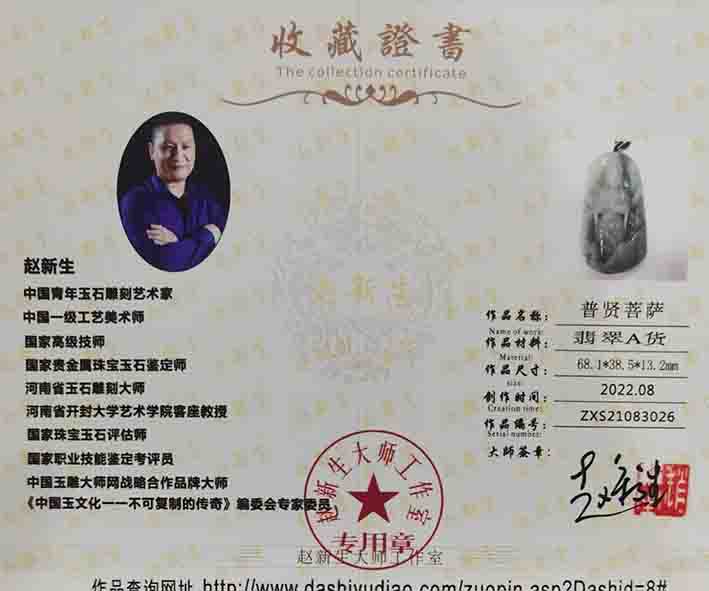 收藏證書
The collection certificate
赵新生
中国青年玉石雕刻艺术家
中国一级工艺美术师
国家高级技师
国家贵金属珠宝玉石鉴定师
河南省玉石雕刻大师
河南省开封大学艺术学院客座教授
国家珠宝玉石评估师
国家职业技能鉴定考评员
中国玉雕大师网战略合作品牌大师
《中国玉文化一一不可复制的传奇》编委会专家委员
作品名称： 普贤菩萨
Name of work:
作品材料： 翡翠A货
Material:
作品尺寸： 68.1*38.5*13.2mm
size:
创作时间： 2022.08
Creation time:
作品编号： ZXS21083026
Serial number:
大师签章：
赵新生大师工作室
专用章
赵新生大师工作室
作品查询网址 http://www.dashiyudiao.com/zuopin.asp?Dashid=8#